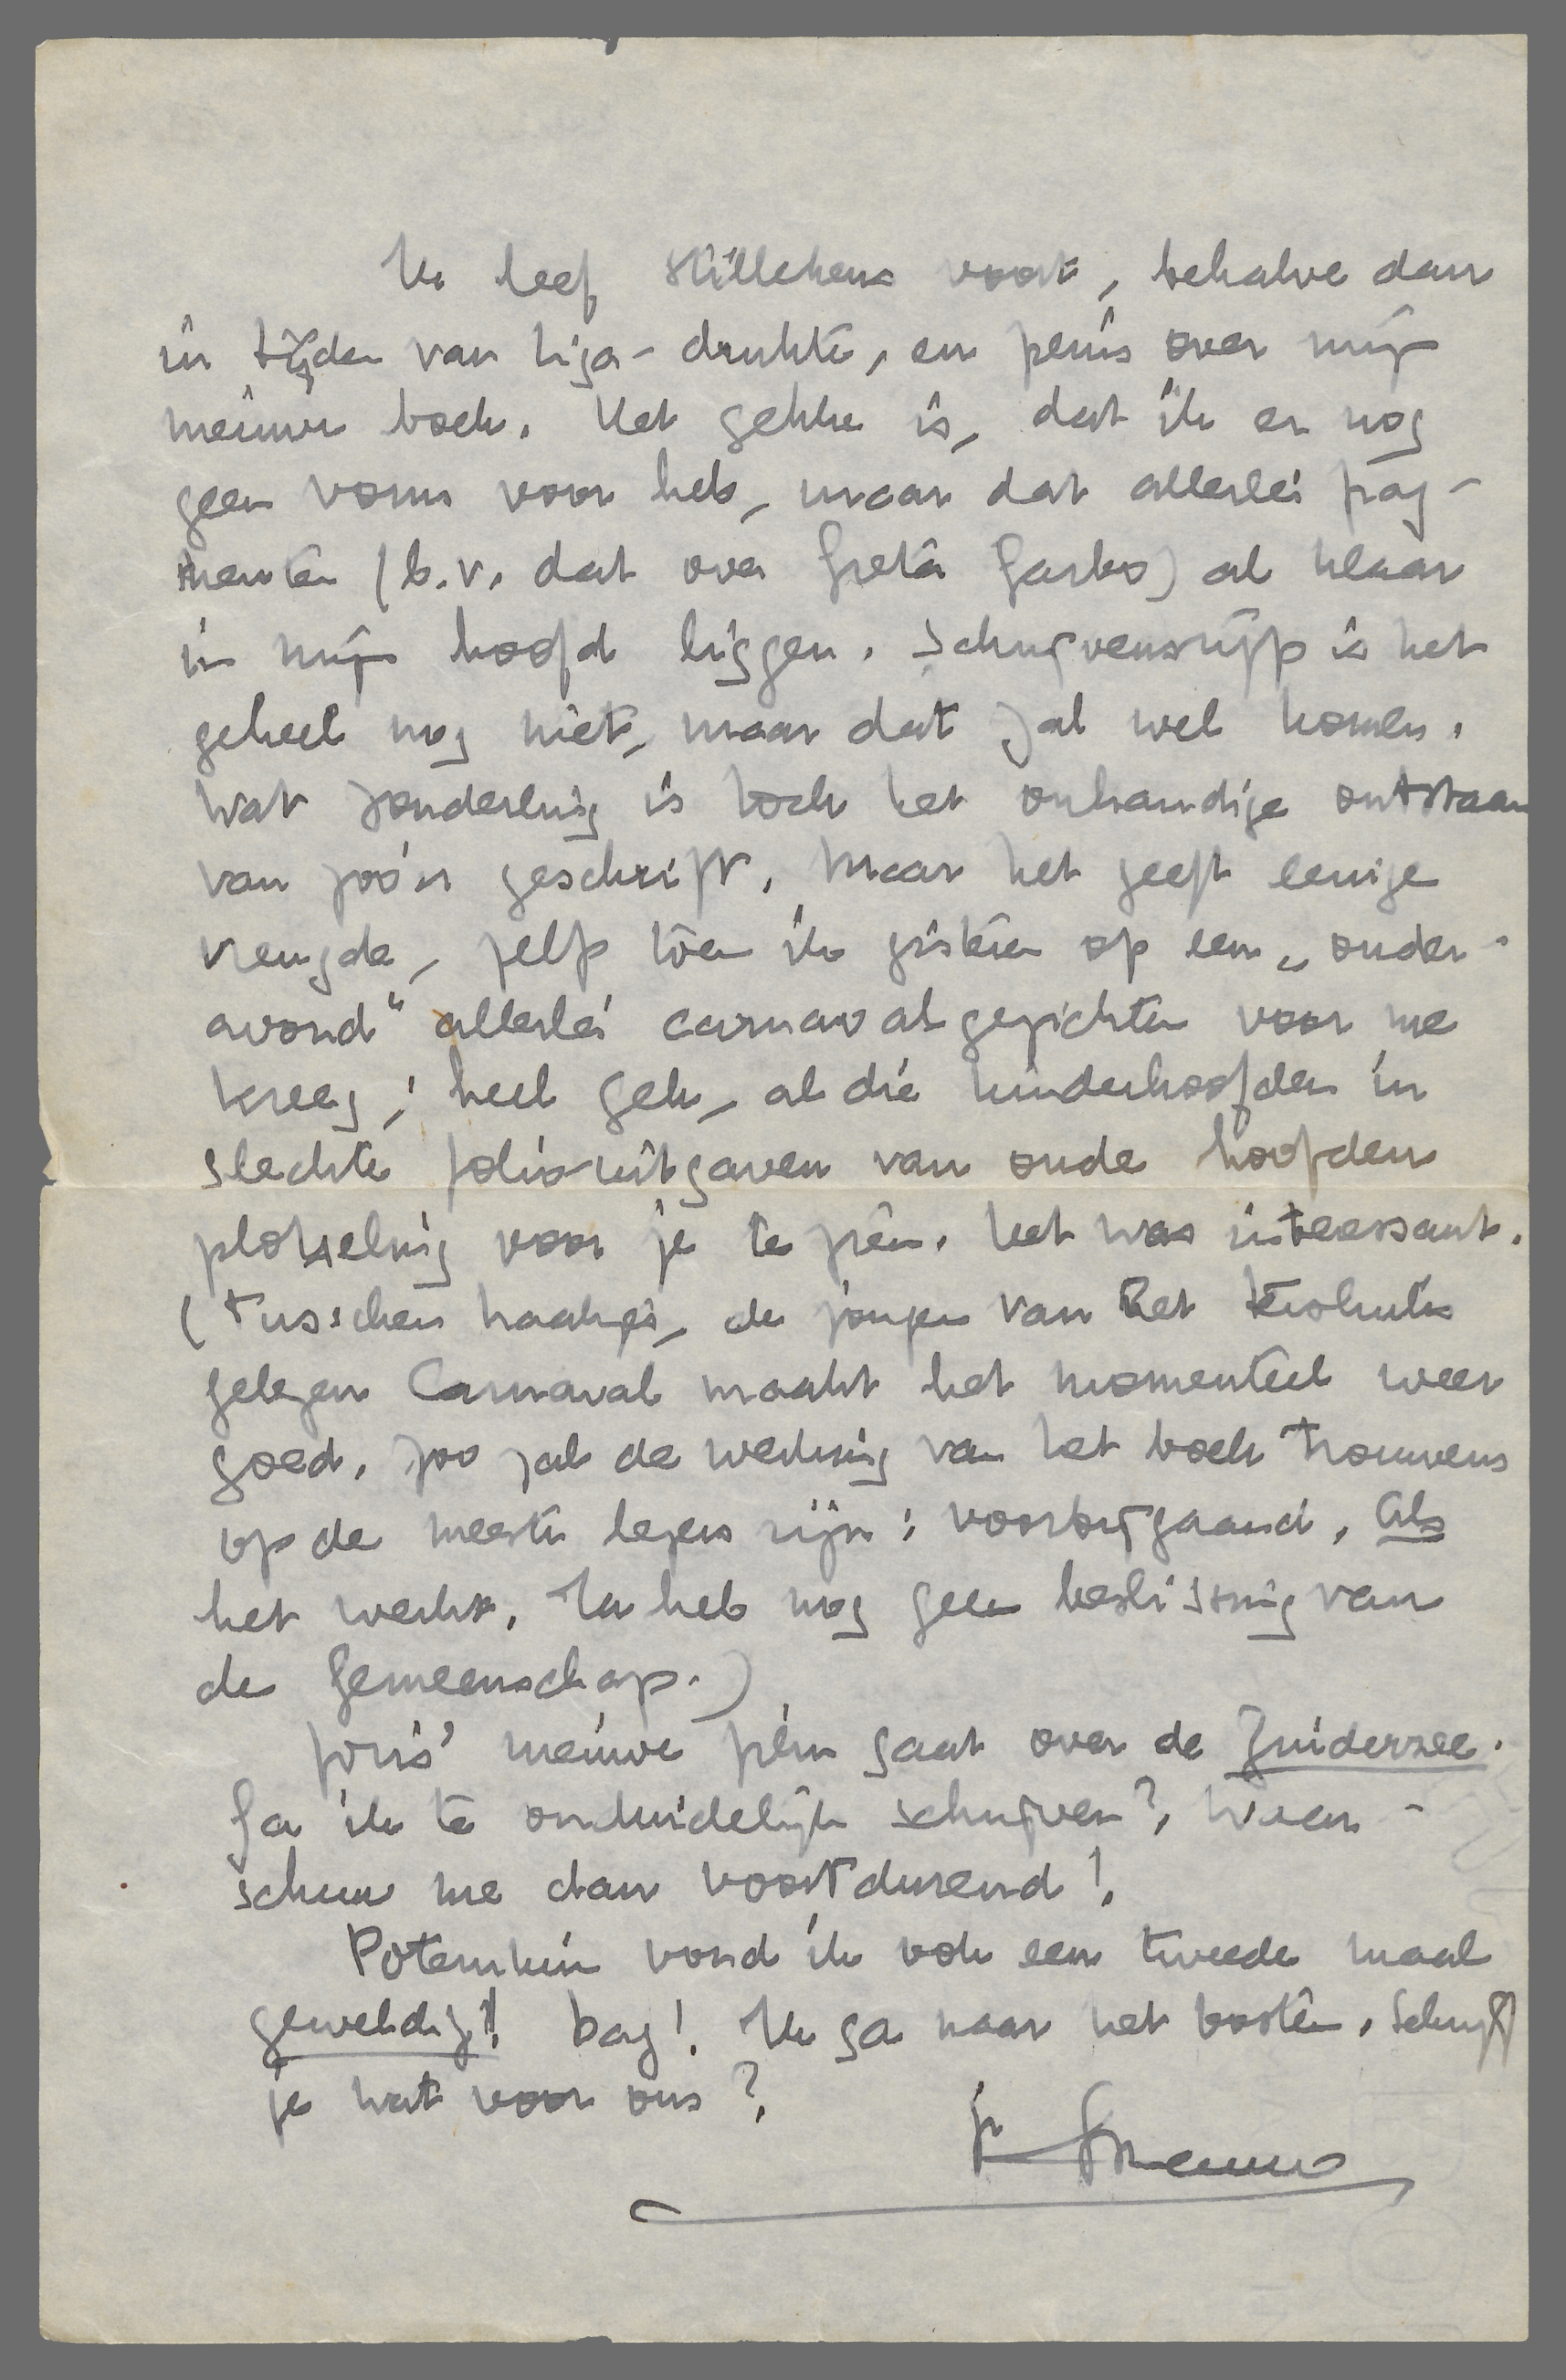 Ik leef stillekens voort, behalve dan
in tijden van liga-drukte, en peins over mijn
nieuwe boek. Het gekke is, dat ik er nog
geen vorm voor heb, maar dat allerlei frag-
menten (b.v. dat over Greta Garbo) al klaar
in mijn hoofd liggen. Schrijvensrijp is het
geheel nog niet, maar dat zal wel komen.
Wat zonderling is toch het onhandige ontstaan
van zoo'n geschrift. Maar het geeft eenige
vreugde, zelfs toen ik gisteren op een „ouder-
avond" allerlei carnavalgezichten voor me
kreeg; heel gek, al die kinderhoofden in
slechte folio-uitgaven van oude hoofden
plotseling voor je te zien. Het was interessant.
(Tusschen haakjes, de jongen van het
gelezen Carnaval maakt het momenteel weer
goed. Zoo zal de werking van het boek trouwens
op de meeste lezers zijn: voorbijgaand. Als
het werkt. Ik heb nog geen beslissing van
de Gemeenschap.)
Joris' nieuwe film gaat over de Zuiderzee.
Ga ik te onduidelijk schrijven? Waar-
schuw me dan voortdurend!
Potemkin vond ik ook een tweede maal
geweldig! Dag! Ik ga naar het bosten. Schrijf
je wat voor ons?
je Menno